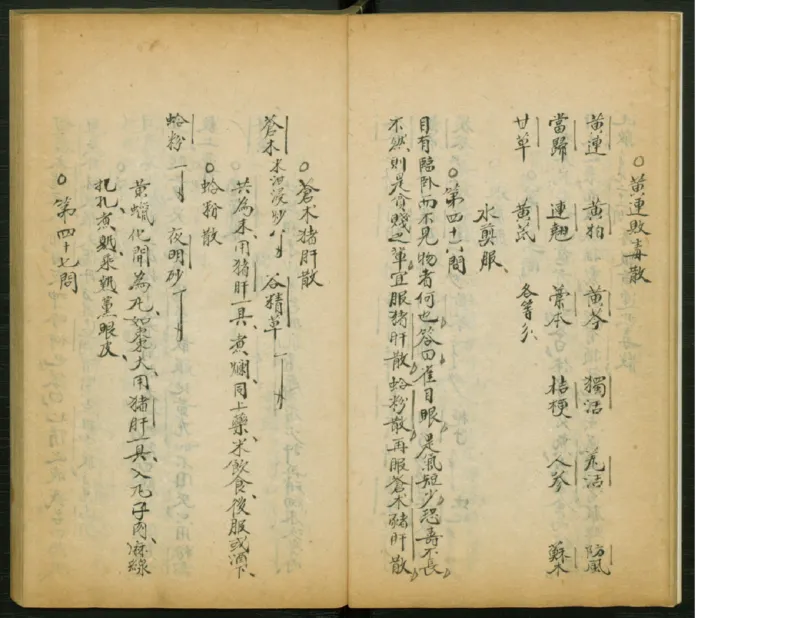 ○黃連敗毒散
黃連 黃柏 黃芩 獨活 羌活 防風
當歸 連翹 藁本 桔梗 人參 蘇木
甘草 黃芪 各等分
水煎服
○第四十六問
目有臨卧而不見物者何也答曰雀目眼是氣短少恐壽不長
不然則是貧賤之軰宜服猪肝散蛤粉散再服蒼术豬肝散
○蒼术猪肝散
蒼术米泔浸炒八 谷精草一
共為末用猪肝一具煮爛同士藥米飲食後服或酒下
○蛤粉散
蛤粉一 夜明砂一
黃蠟化開為丸如棗大用猪肝一具入丸子肉麻線
扎扎煮熟乘熱薰眼皮
○第四十七問